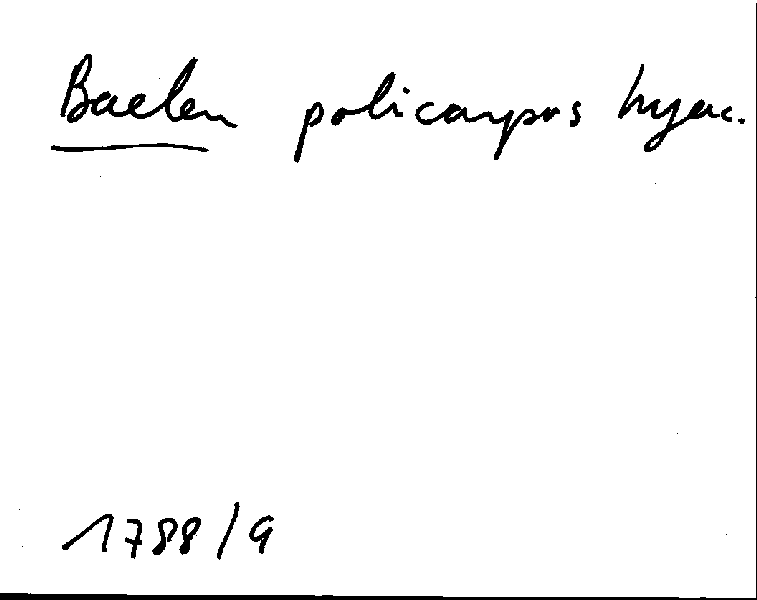 Baelen policarpus hyac.
1788/9